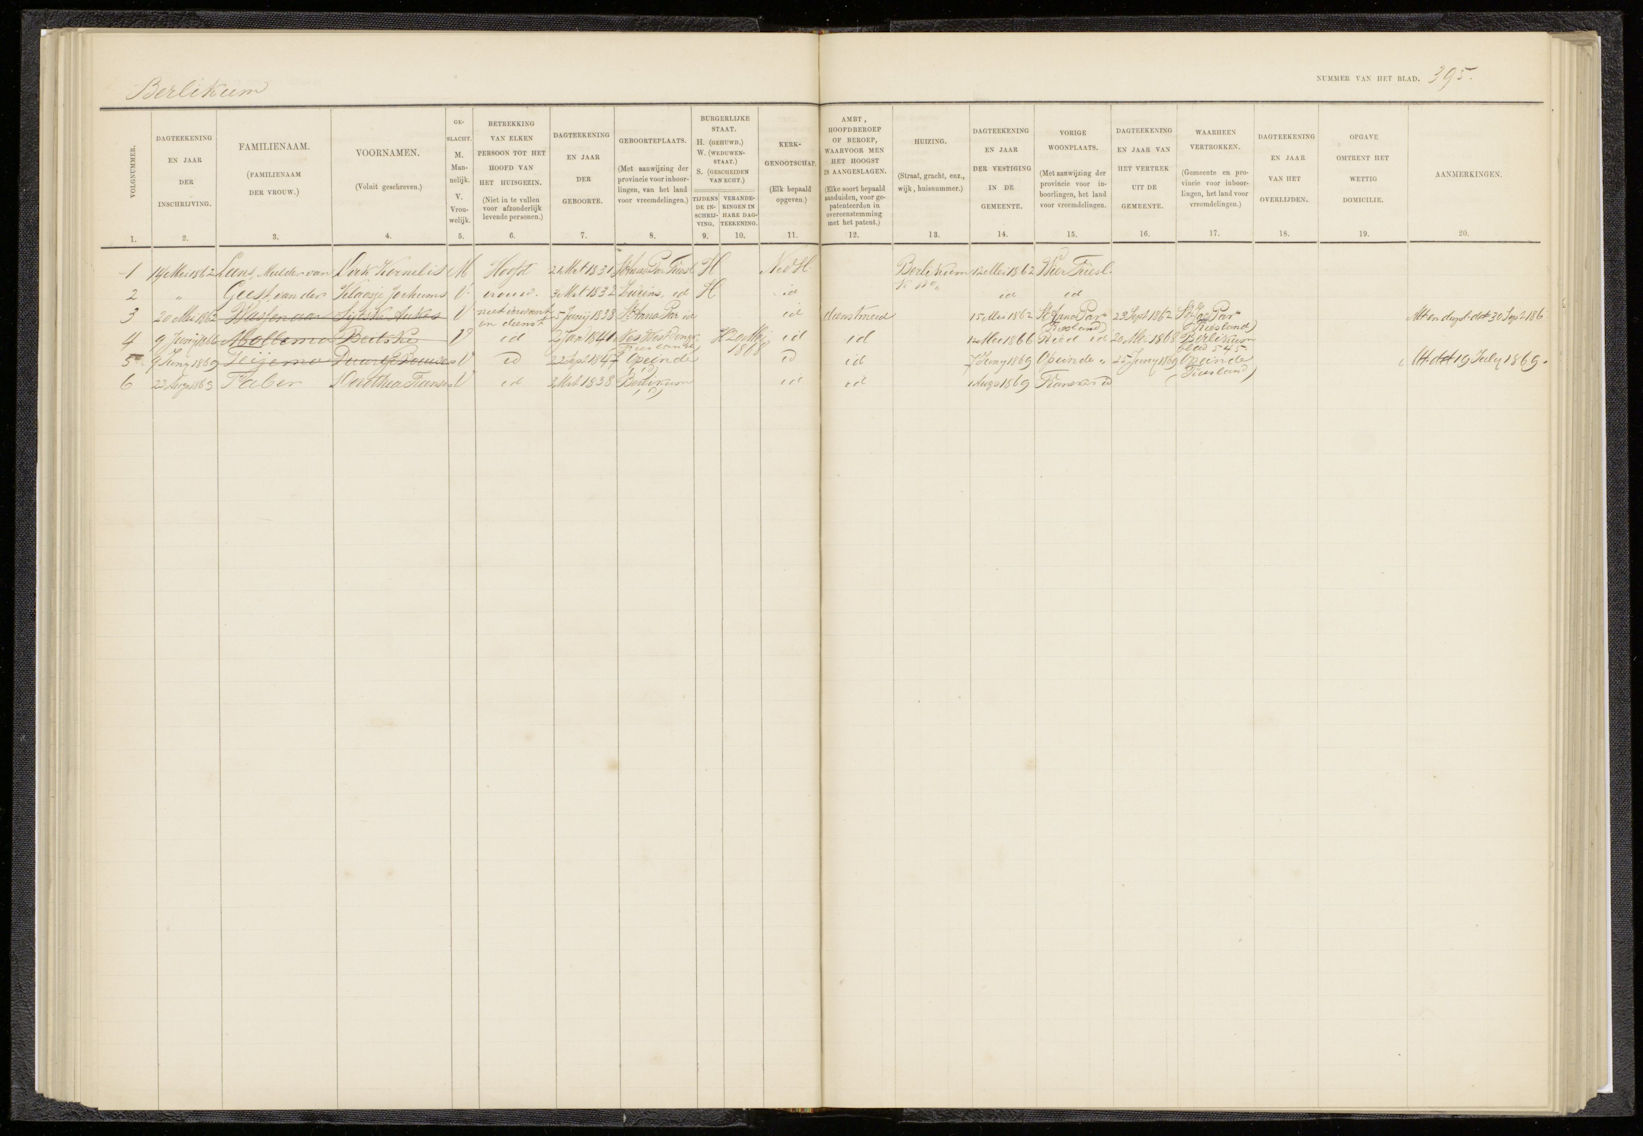 Berlikum
NUMMER VAN HET BLAD. 395.
VOLGNUMMER.
1.
DAGTEEKENING
EN JAAR
DER
INSCHRIJVING.
2.
FAMILIENAAM.
(FAMILIENAAM
DER VROUW.)
3.
VOORNAMEN.
(Voluit geschreven.)
4.
GE-
SLACHT.
M.
Man-
nelijk.
V.
Vrou-
welijk.
5.
BETREKKING
VAN ELKEN
PERSOON TOT HET
HOOFD VAN
HET HUISGEZIN.
(Niet in te vullen
voor afzonderlijk
levende personen.)
6.
DAGTEEKENING
EN JAAR
DER
GEBOORTE.
7.
GEBOORTEPLAATS.
(Met aanwijzing der
provincie voor inboor-
lingen, van het land
voor vreemdelingen.)
8.
BURGERLIJKE
STAAT.
H. (GEHUWD.)
W. (WEDUWEN-
STAAT.)
S. (GESCHEIDEN
VAN ECHT.)
TIJDENS
DE IN-
SCHRIJ-
VING.
9.
VERANDE-
RINGEN IN
HARE DAG-
TEEKENING.
10.
KERK-
GENOOTSCHAP.
(Elk bepaald
opgeven.)
11.
AMBT,
HOOFDBEROEP
OF BEROEP,
WAARVOOR MEN
HET HOOGST
IS AANGESLAGEN.
(Elke soort bepaald
aanduiden, voor ge-
patenteerden in
overeenstemming
met het patent.)
12.
HUIZING.
(Straat, gracht, enz.,
wijk, huisnummer.)
13.
DAGTEEKENING
EN JAAR
DER VESTIGING
IN DE
GEMEENTE.
14.
VORIGE
WOONPLAATS.
(Met aanwijzing der
provincie voor in-
boorlingen, het land
voor vreemdelingen.
15.
DAGTEEKENING
EN JAAR VAN
HET VERTREK
UIT DE
GEMEENTE.
16.
WAARHEEN
VERTROKKEN.
(Gemeente en pro-
vincie voor inboor-
lingen, het land voor
vreemdelingen.)
17.
DAGTEEKENING
EN JAAR
VAN HET
OVERLIJDEN.
18.
OPGAVE
OMTRENT HET
WETTIG
DOMICILIE.
19.
AANMERKINGEN.
20.
1 14 Mei 1862 Lans, Mulder van Dirk Kornelis M Hoofd 21 Mrt 1831 St Anna Par. Friesl H Ned H Berlikum 12 Mei 1862 Wier Friesl.
2 " Geest, van der Klaasje Jochems V vrouw. 3 Mrt 1832 id H id id id
3 20 Mei 1862 Sijtske Ankes V niet verwant en dienstb 5 Junij 1838 St Anna Par id id dienstmeid 15 Mei 1862 St Anna Par (Friesland) 23 Sept 1862 St Anna Par (Friesland) 30 Sept 186
4 9 Junij Mollema Baukje V id 2 Jan 1841 H 20 Mei 1868 id id 12 Mei 1866 id 20 Mei 1868 Berlikum blad 545
5 9 Junij 1869 V id 22 Sept 1847 Opeinde (id) id id 7 Junij 1869 Opeinde " 25 Junij 1869 Opeinde (Friesland) 19 July 1869.
6 22 Aug 1869 Faber Dorothea Fransen V id 2 Mrt 1838 Berlikum (id) id id Aug 1869 Franeker id